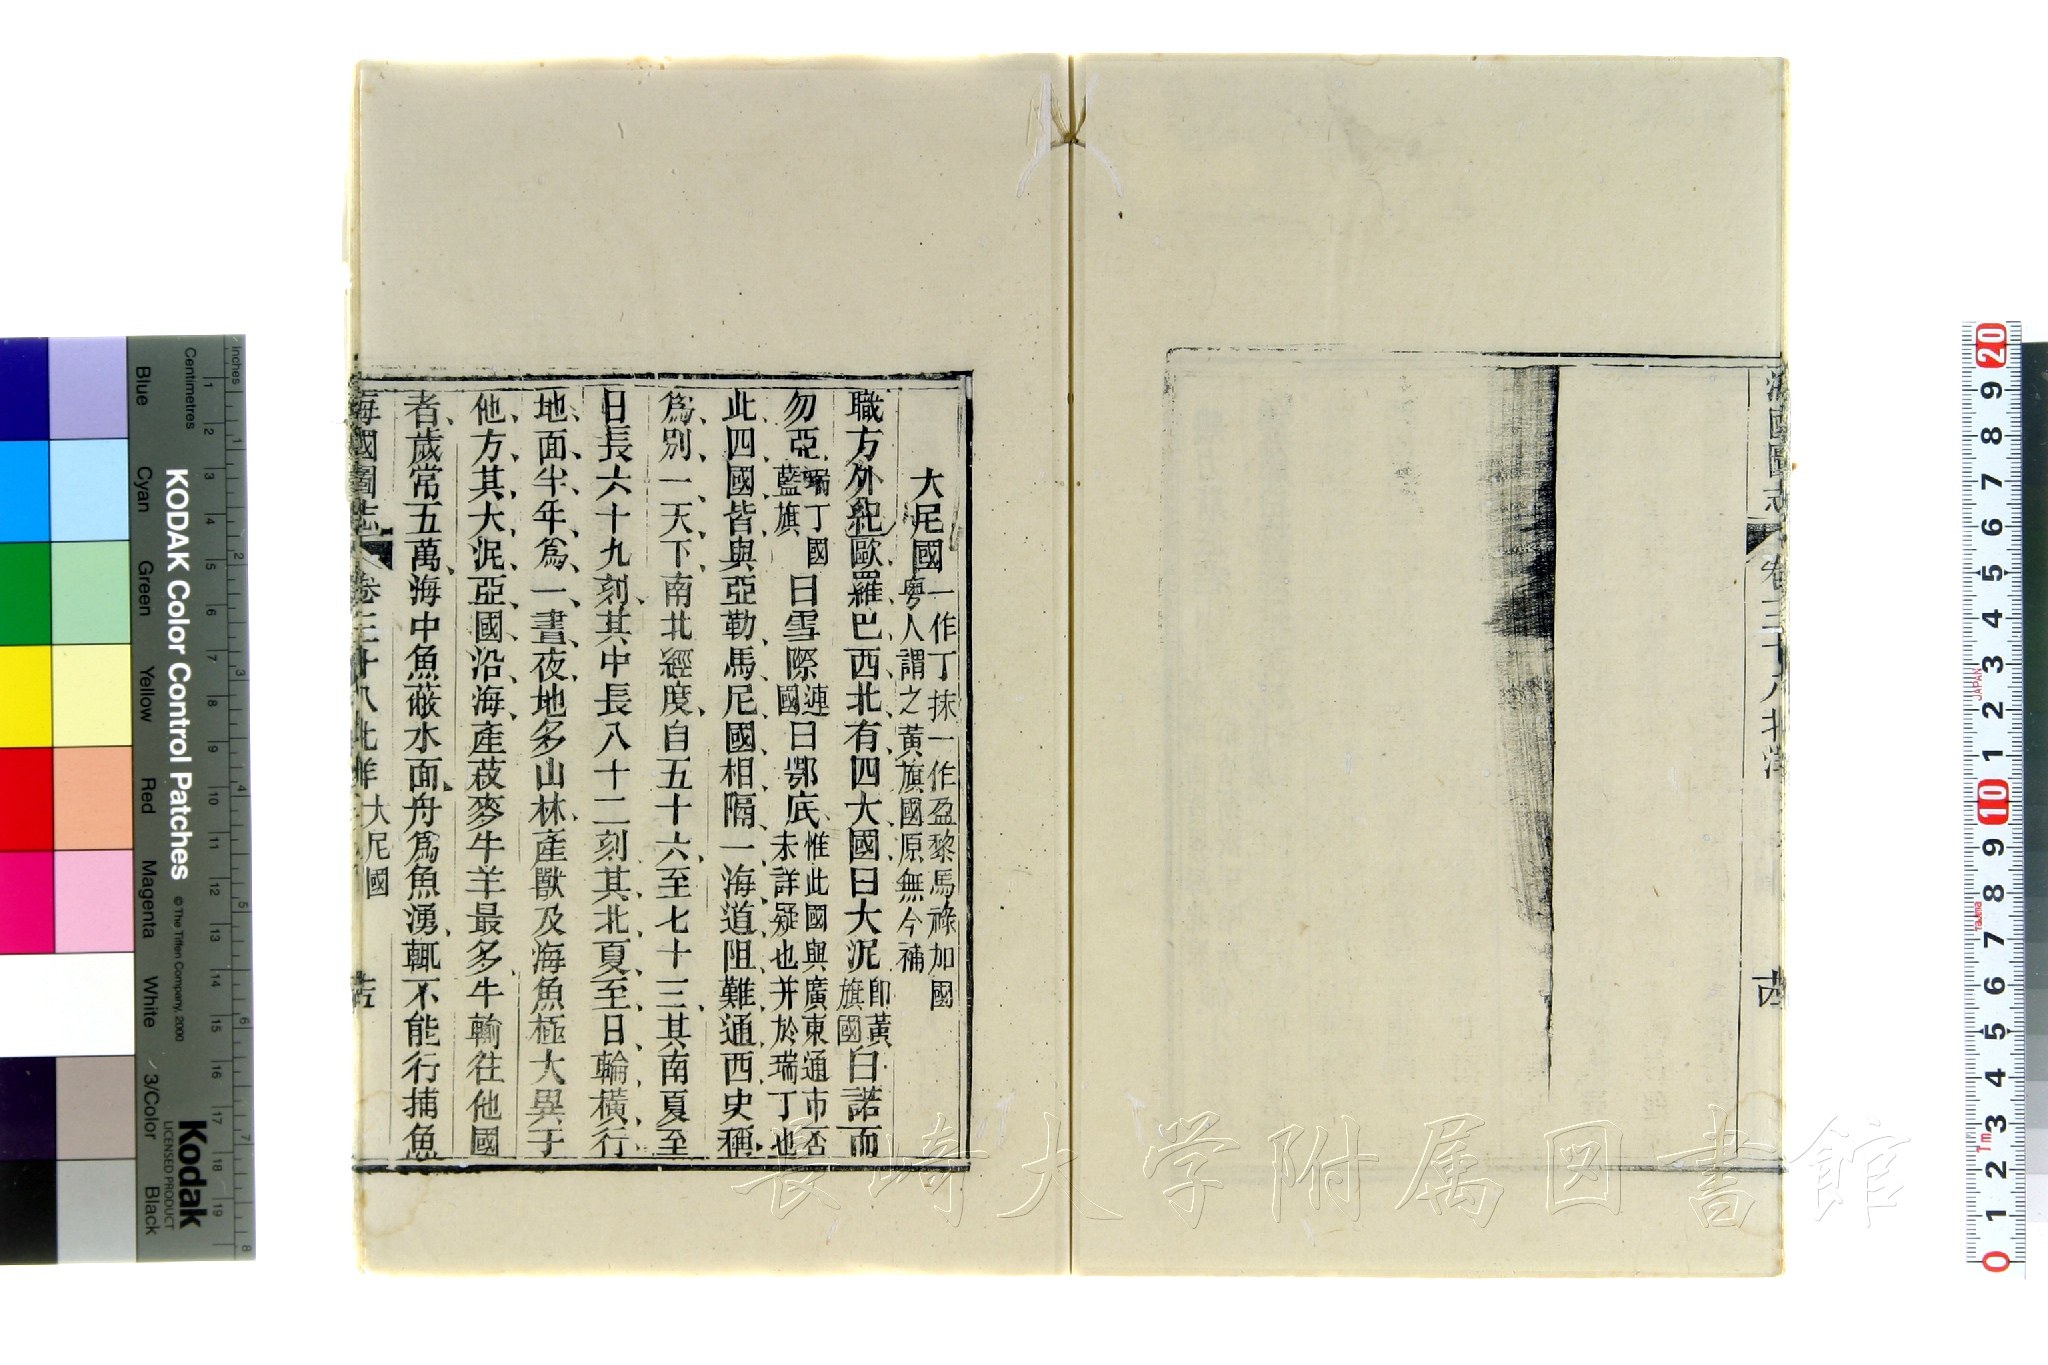 海國圖志
卷三十八北洋
大尼國一作丁抹一作盈黎馬祿加國粵人謂之黃旗國原無今補
職方外紀歐羅巴西北有四大國曰大泥卽黃旗國曰諾而
勿亞瑞丁國藍旗曰雪際漣國曰鄂底惟此國與廣東通市否未詳疑也并於瑞丁也
此四國皆與亞勒馬尼國相隔一海道阻難通西史稱
爲別一天下南北經度自五十六至七十三其南夏至
日長六十九刻其中長八十二刻其北夏至日輪橫行
地面半年爲一晝夜地多山林產獸及海魚極大異于
他方其大泥亞國沿海產菽麥牛羊最多牛輸往他國
者歲常五萬海中魚蔽水面舟爲魚湧輒不能行捕魚
海國圖志 卷三十八北洋三 大尼國
長崎大学附属図書館
KODAK Color Control Patches
© The Tiffen Company, 2000
Kodak
LICENSED PRODUCT
Inches
Centimetres
Blue
Cyan
Green
Yellow
Red
Magenta
White
3/Color
Black
JAPAN